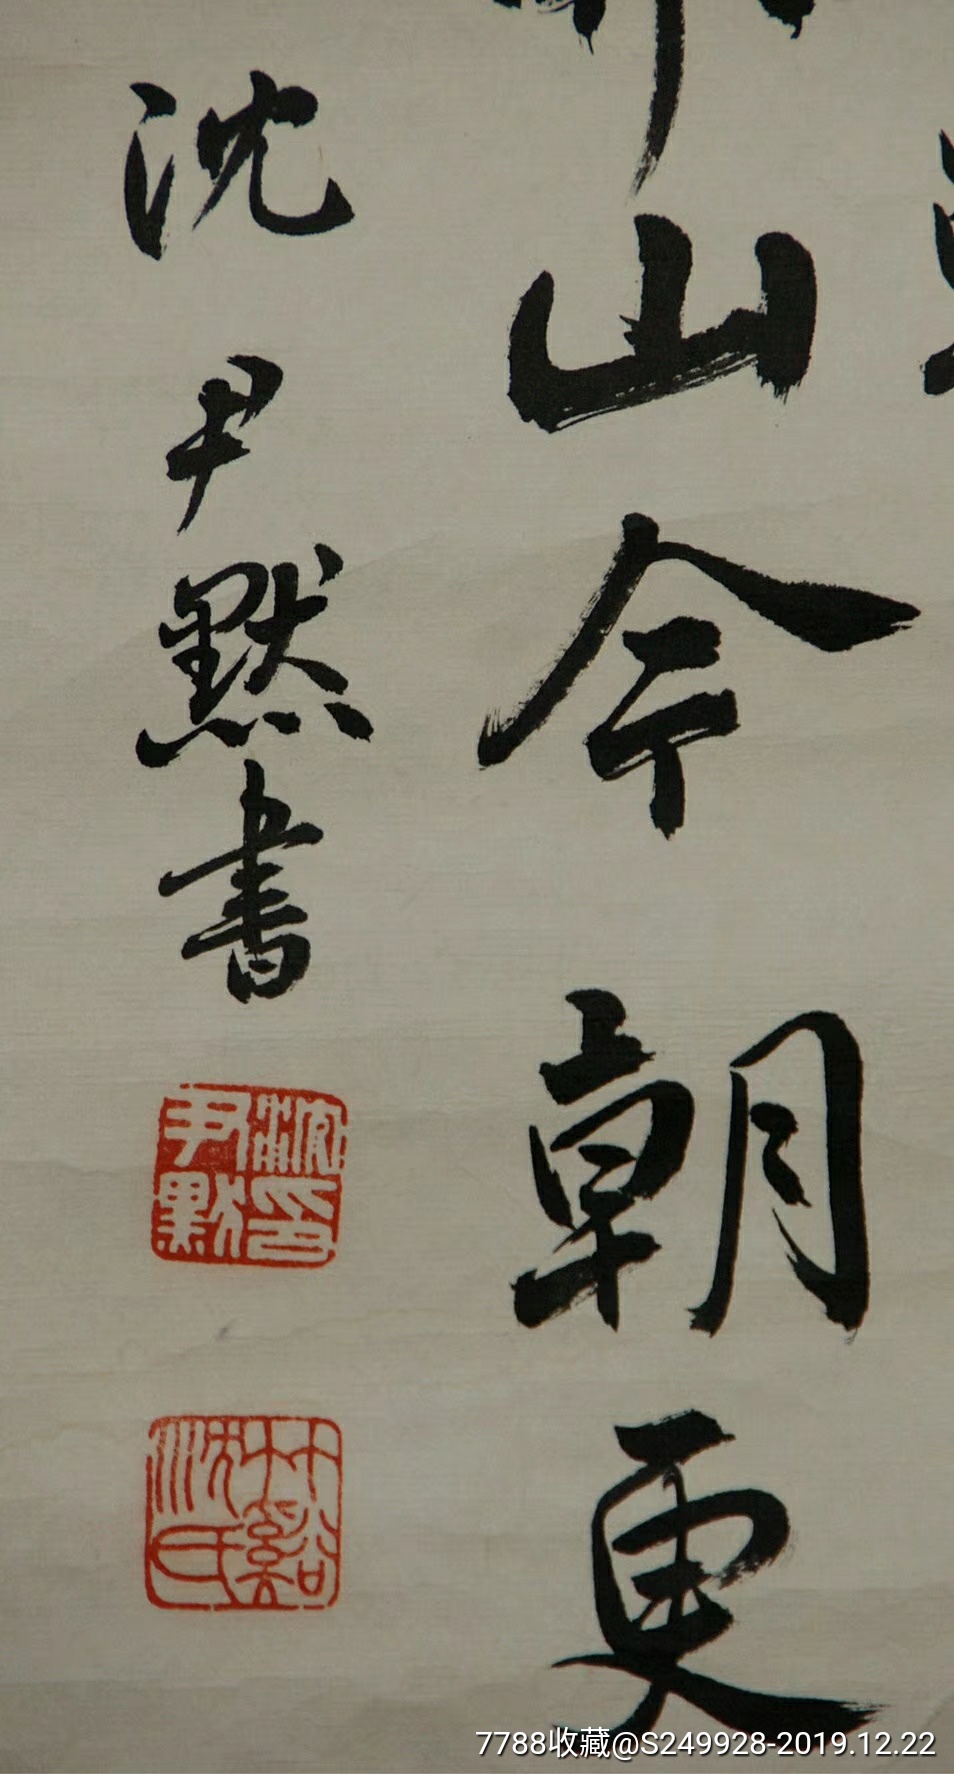 山今朝更
沈尹默書
沈尹默印
竹谿沈氏
7788收藏@S249928-2019.12.22